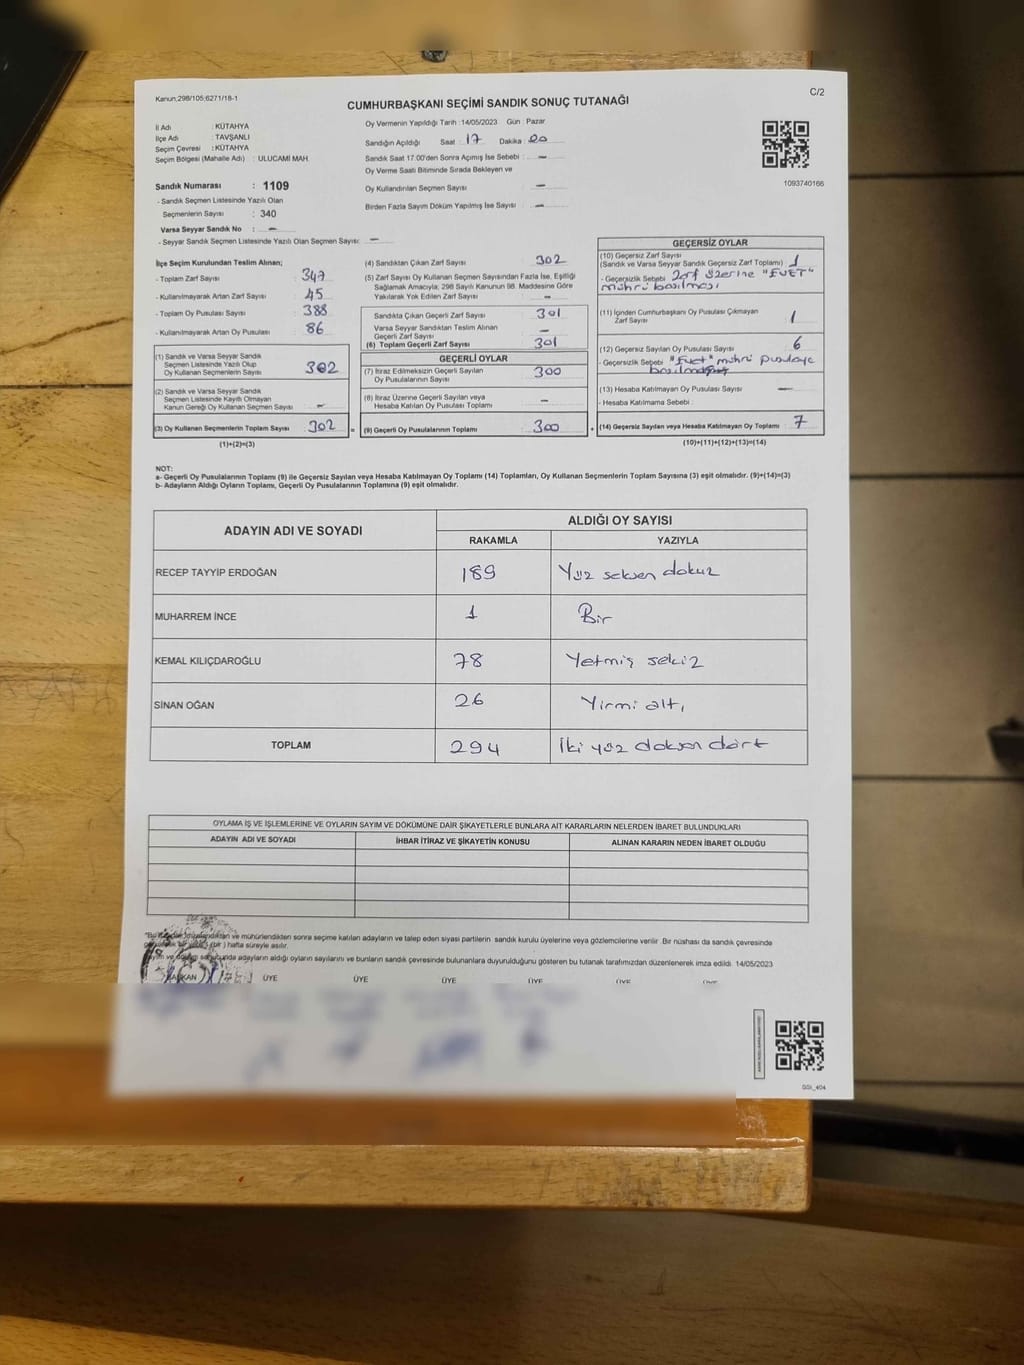 Kanun:298/105:6271/18-1
C/2
CUMHURBAŞKANI SEÇİMİ SANDIK SONUÇ TUTANAĞI
İl Adı : KÜTAHYA
İlçe Adı : TAVŞANLI
Seçim Çevresi : KÜTAHYA
Seçim Bölgesi (Mahalle Adı) : ULUCAMİ MAH.
Sandık Numarası : 1109
- Sandık Seçmen Listesinde Yazılı Olan
Seçmenlerin Sayısı : 340
Varsa Seyyar Sandık No : -
- Seyyar Sandık Listesinde Yazılı Olan Seçmen Sayısı: -
Oy Vermenin Yapıldığı Tarih :14/05/2023 Gün : Pazar
Sandığın Açıldığı Saat : 17 Dakika : 20
Sandık Saat 17:00'den Sonra Açılmış İse Sebebi : -
Oy Verme Saati Bitiminde Sırada Bekleyen ve
Oy Kullandırılan Seçmen Sayısı : -
Birden Fazla Sayım Döküm Yapılmış İse Sayısı : -
1093740166
İlçe Seçim Kurulundan Teslim Alınan;
- Toplam Zarf Sayısı : 347
- Kullanılmayarak Artan Zarf Sayısı : 45
- Toplam Oy Pusulası Sayısı : 388
- Kullanılmayarak Artan Oy Pusulası : 86
(1) Sandık ve Varsa Seyyar Sandık
Seçmen Listesinde Yazılı Olup
Oy Kullanan Seçmenlerin Sayısı 302
(2) Sandık ve Varsa Seyyar Sandık
Seçmen Listesinde Kayıtlı Olmayan
Kanun Gereği Oy Kullanan Seçmen Sayısı -
(3) Oy Kullanan Seçmenlerin Toplam Sayısı 302
(1)+(2)=(3)
(4) Sandıktan Çıkan Zarf Sayısı 302
(5) Zarf Sayısı Oy Kullanan Seçmen Sayısından Fazla İse, Eşitliği
Sağlamak Amacıyla; 298 Sayılı Kanunun 98. Maddesine Göre
Yakılarak Yok Edilen Zarf Sayısı : -
Sandıkta Çıkan Geçerli Zarf Sayısı : 301
Varsa Seyyar Sandıktan Teslim Alınan
Geçerli Zarf Sayısı : -
(6) Toplam Geçerli Zarf Sayısı : 301
GEÇERLİ OYLAR
(7) İtiraz Edilmeksizin Geçerli Sayılan
Oy Pusulalarının Sayısı : 300
(8) İtiraz Üzerine Geçerli Sayılan veya
Hesaba Katılan Oy Pusulası Toplamı : -
(9) Geçerli Oy Pusulalarının Toplamı : 300
GEÇERSİZ OYLAR
(10) Geçersiz Zarf Sayısı
(Sandık ve Varsa Seyyar Sandık Geçersiz Zarf Toplamı) 1
- Geçersizlik Sebebi Zarf üzerine "EVET"
mührü basılması
(11) İçinden Cumhurbaşkanı Oy Pusulası Çıkmayan
Zarf Sayısı : 1
(12) Geçersiz Sayılan Oy Pusulası Sayısı : 6
- Geçersizlik Sebebi "Evet" mührü pusulaya
(13) Hesaba Katılmayan Oy Pusulası Sayısı -
- Hesaba Katılmama Sebebi :
(14) Geçersiz Sayılan veya Hesaba Katılmayan Oy Toplamı : 7
(10)+(11)+(12)+(13)=(14)
NOT:
a- Geçerli Oy Pusulalarının Toplamı (9) ile Geçersiz Sayılan veya Hesaba Katılmayan Oy Toplamı (14) Toplamları, Oy Kullanan Seçmenlerin Toplam Sayısına (3) eşit olmalıdır. (9)+(14)=(3)
b- Adayların Aldığı Oyların Toplamı, Geçerli Oy Pusulalarının Toplamına (9) eşit olmalıdır.
ADAYIN ADI VE SOYADI ALDIĞI OY SAYISI
RAKAMLA YAZIYLA
RECEP TAYYİP ERDOĞAN 189 Yüz seksen dokuz
MUHARREM İNCE 1 Bir
KEMAL KILIÇDAROĞLU 78 Yetmiş sekiz
SİNAN OĞAN 26 Yirmi altı
TOPLAM 294 İki yüz doksan dört
OYLAMA İŞ VE İŞLEMLERİNE VE OYLARIN SAYIM VE DÖKÜMÜNE DAİR ŞİKAYETLERLE BUNLARA AİT KARARLARIN NELERDEN İBARET BULUNDUKLARI
ADAYIN ADI VE SOYADI İHBAR İTİRAZ VE ŞİKAYETİN KONUSU ALINAN KARARIN NEDEN İBARET OLDUĞU
ve mühürlendikten sonra seçime katılan adayların ve talep eden siyasi partilerin sandık kurulu üyelerine veya gözlemcilerine verilir .Bir nüshası da sandık çevresinde
(bir ) hafta süreyle asılır.
adayların aldığı oyların sayılarını ve bunların sandık çevresinde bulunanlara duyurulduğunu gösteren bu tutanak tarafımızdan düzenlenerek imza edildi. 14/05/2023
BAŞKAN ÜYE ÜYE ÜYE ÜYE ÜYE ÜYE
GSI_404